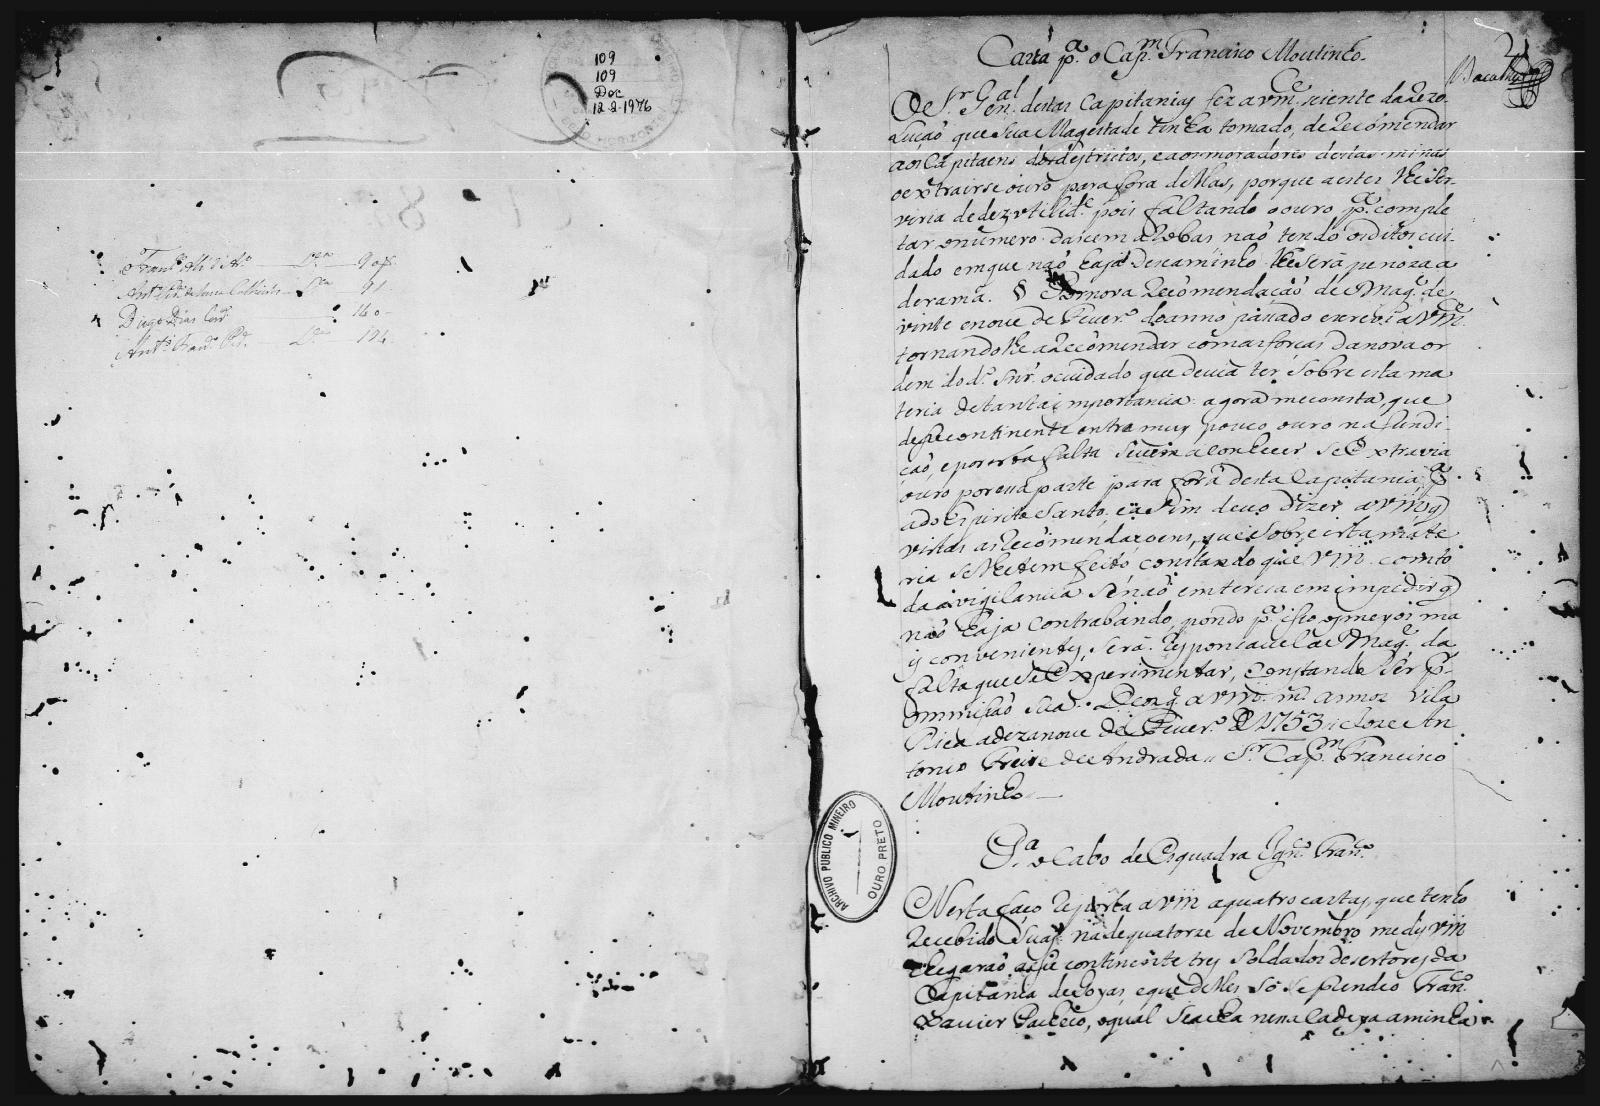 109
109
Doc
12-2-1976
Fran.co
Diogo Dias 160
Ant.o 194
2
Carta p.a o Cap.m Francisco Moutinho.
O S.r Gen.al destas Capitanias fez a vm.ce sciente da rezo-
lução que Sua Magestade tinha tomado, de recomendar
aos Capitaens dos destrictos, e aos moradores destas minas
o extrairse ouro para fora dellas, porque a estes lhe ser-
viria de dezutilid.e pois faltando o ouro p.a comple
tar o numero das cem arobas não tendo os ditos cui-
dado em que não haja descaminho lhe será penoza a
derama. § Por nova recomendação de Mag.e de
vinte e nove de Fever.o do anno passado escrevi a Vm.ce
tornandolhe a recomendar com as forças da nova or
dem do d.o Snr. o cuidado que devia ter sobre esta ma
teria de tanta importancia: agora me consta, que
desse continente entra muy pouco ouro na fundi-
ção, e por esta falta se vem a conhecer se extravia
ouro por essa parte para fora desta Capitania p.a
a do Espirito Santo. e asim devo dizer a vm q
vistas as recomendaçoens, que sobre esta mate
ria se lhe tem feito constando que vm. com to
da a vigilancia se não interesa em impedir q
não haja contrabando, pondo p.a isto os meyos ma
is convenientes, será responsavel a Mag.e da
falta que se experimentar, constando ser p.r
ommissão sua. D.s g.e a vm. m.s annos Vila
Rica a dezanove de Fever.o D 1753 // Joze An
tonio Freire de Andrada // S.r Cap.m Francisco
Moutinho —
P.a o Cabo de Esquadra Ign.o Fran.co
Nesta faço resposta a vm a quatro cartas que tenho
recebido suas: na de quatorze de Novembro me diz vm
chegarão a esse continente tres soldados desertores da
Capitania de Goyas, e que delles só se prendeo Fran.co
Xavier Pacheco, o qual se acha nessa cadeya a minha
ARCHIVO PUBLICO MINEIRO
OURO PRETO